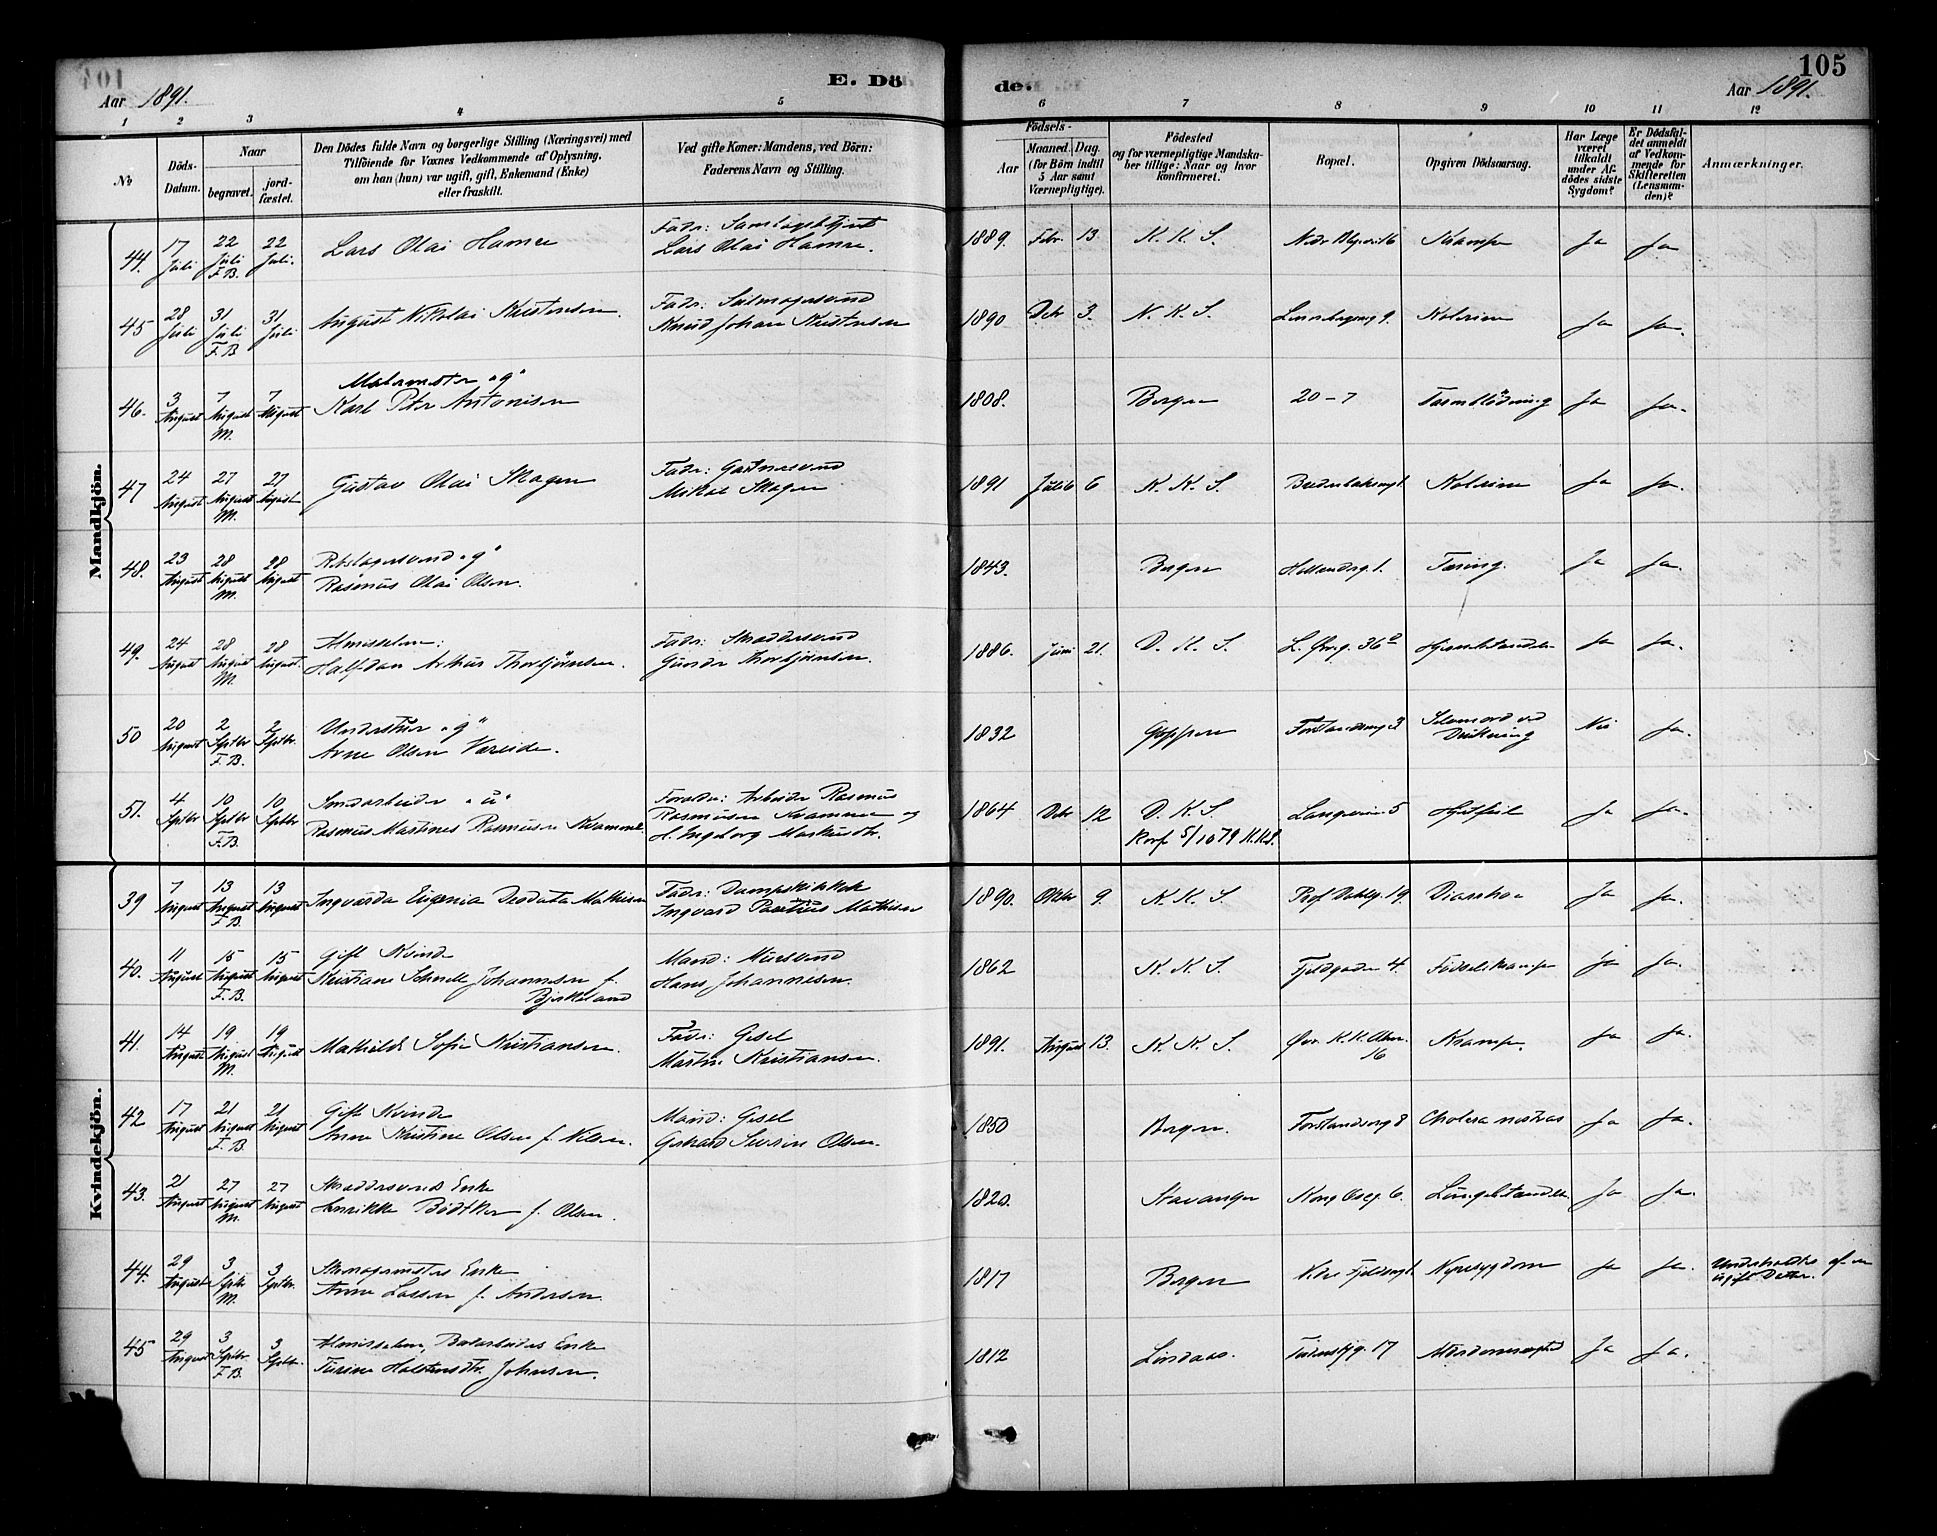 104
Aar 1891.
E. Dö
de.
105
Aar 1891.
1 2 3 4 5 6 7 8 9 10 11 12
No
Döds-Datum.
Naar
begravet.
jord-fæstet.
Den Dödes fulde Navn og borgerlige Stilling (Næringsvei) med
Tilföiende for Voxnes Vedkommende af Oplysning,
om han (hun) var ugift, gift, Enkemand (Enke)
eller fraskilt.
Ved gifte Koner: Mandens, ved Börn:
Faderens Navn og Stilling.
Födsels-
Aar
Maaned. Dag.
(for Börn indtil
5 Aar samt
Værnepligtige).
Födested
og for værnepligtige Mandska-
ber tillige: Naar og hvor
konfirmeret.
Bopæl.
Opgiven Dödsaarsag.
Har Læge
været
tilkaldt
under Af-
dödes sidste
Sygdom?
Er Dödsfal-
det anmeldt
af Vedkom-
mende for
Skifteretten
(Lensman-
den)?
Anmærkninger.
Mandkjön.
44. 17 Juli 22 Juli F.B. 22 Juli. Lars Olai Hamre Fader: Lars Olai Hamre. 1889. Febr. 13. K. K. S. Krampe Ja Ja
45 28 Juli 31 Juli F.B 31 Juli August Nikolai Kristensen. Fader: Knud Johan Kristensen 1890 Debr 3. N. K. S. Kolerine Ja Ja.
46. 3 August 7 August M. 7 August Malermester "g" Karl Peter Antonisen 1808. Bergen 20-7 Tarmblödning Ja Ja.
47 24 August 27 August M. 27 August Gustav Olai Skagen Fader: Gartnersvend Mikal Skagen 1891 Juli 6 K. K. S. Kolerine Ja Ja.
48. 23 August 28 August M. 28 August Rebslagersvend "g" Rasmus Olai Olsen. 1843. Bergen Hollendergt. Tæring. Ja Ja.
49. 24 August 28 August M. 28 August. Almisselem: Halfdan Arthur Thorbjörnsen. Fader: Skræddersvend Gunder Thorbjörnsen. 1886. Juni 21. D. K. S. L. Övreg. 36 Ja Ja
50 20 August 2 Septbr F.B. 2 Septbr. "g" Arne Olsen Vareide. 1832 Gloppen Forstandersmug 3 Selvmord ved Drukning Nei Ja.
51. 4 Septbr 10 Septbr F.B. 10 Septbr "u" Rasmus Martinus Rasmusen Kvamme Forældre: Arbeider Rasmus Rasmusen Kvamme og H. Ingeborg Markusdtr. 1864 Debr 12 D. K. S. Konf 5/10 79 K.K.S. 5 Hjertfeil Ja Ja.
Kvindekjön.
39 7 August 13 August F.B. 13 August Ingvarda Eugenia Deodata Mathisen Fader: Dampskibskok Ingvard Mathisen 1890. Oktbr 9. K. K. S. Prof. Dahlsg. 19. Diarrhoe Ja Ja.
40. 11 August 15 August F.B. 15 August Gift Kvinde Kristiane Johannesen f. Bjerkeland Mand: Mursvend Hans Johannesen. 1862 K. K. S. Fjeldgaden 4. Födselskrampe Ja Ja.
41. 14 August 19 August M. 19 August Mathilde Sofie Kristiansen. Fader: Gesel Martin Kristiansen. 1891. August 13. K. K. S. Övr. K. K. 16 Krampe. Ja Ja.
42 17 August 21 August F.B. 21 August Gift Kvinde Anne Kristine Olsen f. Nilsen. Mand: Gesel Gerhard Severin Olsen. 1850 Bergen. 8 Cholera nostras Ja Ja.
43. 21 August 27 August M. 27 August Skræddersvends Enke Henrikke Bödtker f. Olsen. 1820. Stavanger Kong Oscg. 6. Ja Ja.
44. 29 August 3 Septbr M. 3 Septbr. Skomagermesters Enke Anne Lassen f. Andersen. 1817 Bergen Nyresygdom Ja Ja. Underholdtes af en ugift Datter.
45 29 August 3 Septbr F.B. 3 Septbr. Almisselem, Enke Johnsen. 1812 Lindaas. 17 Ja Ja.